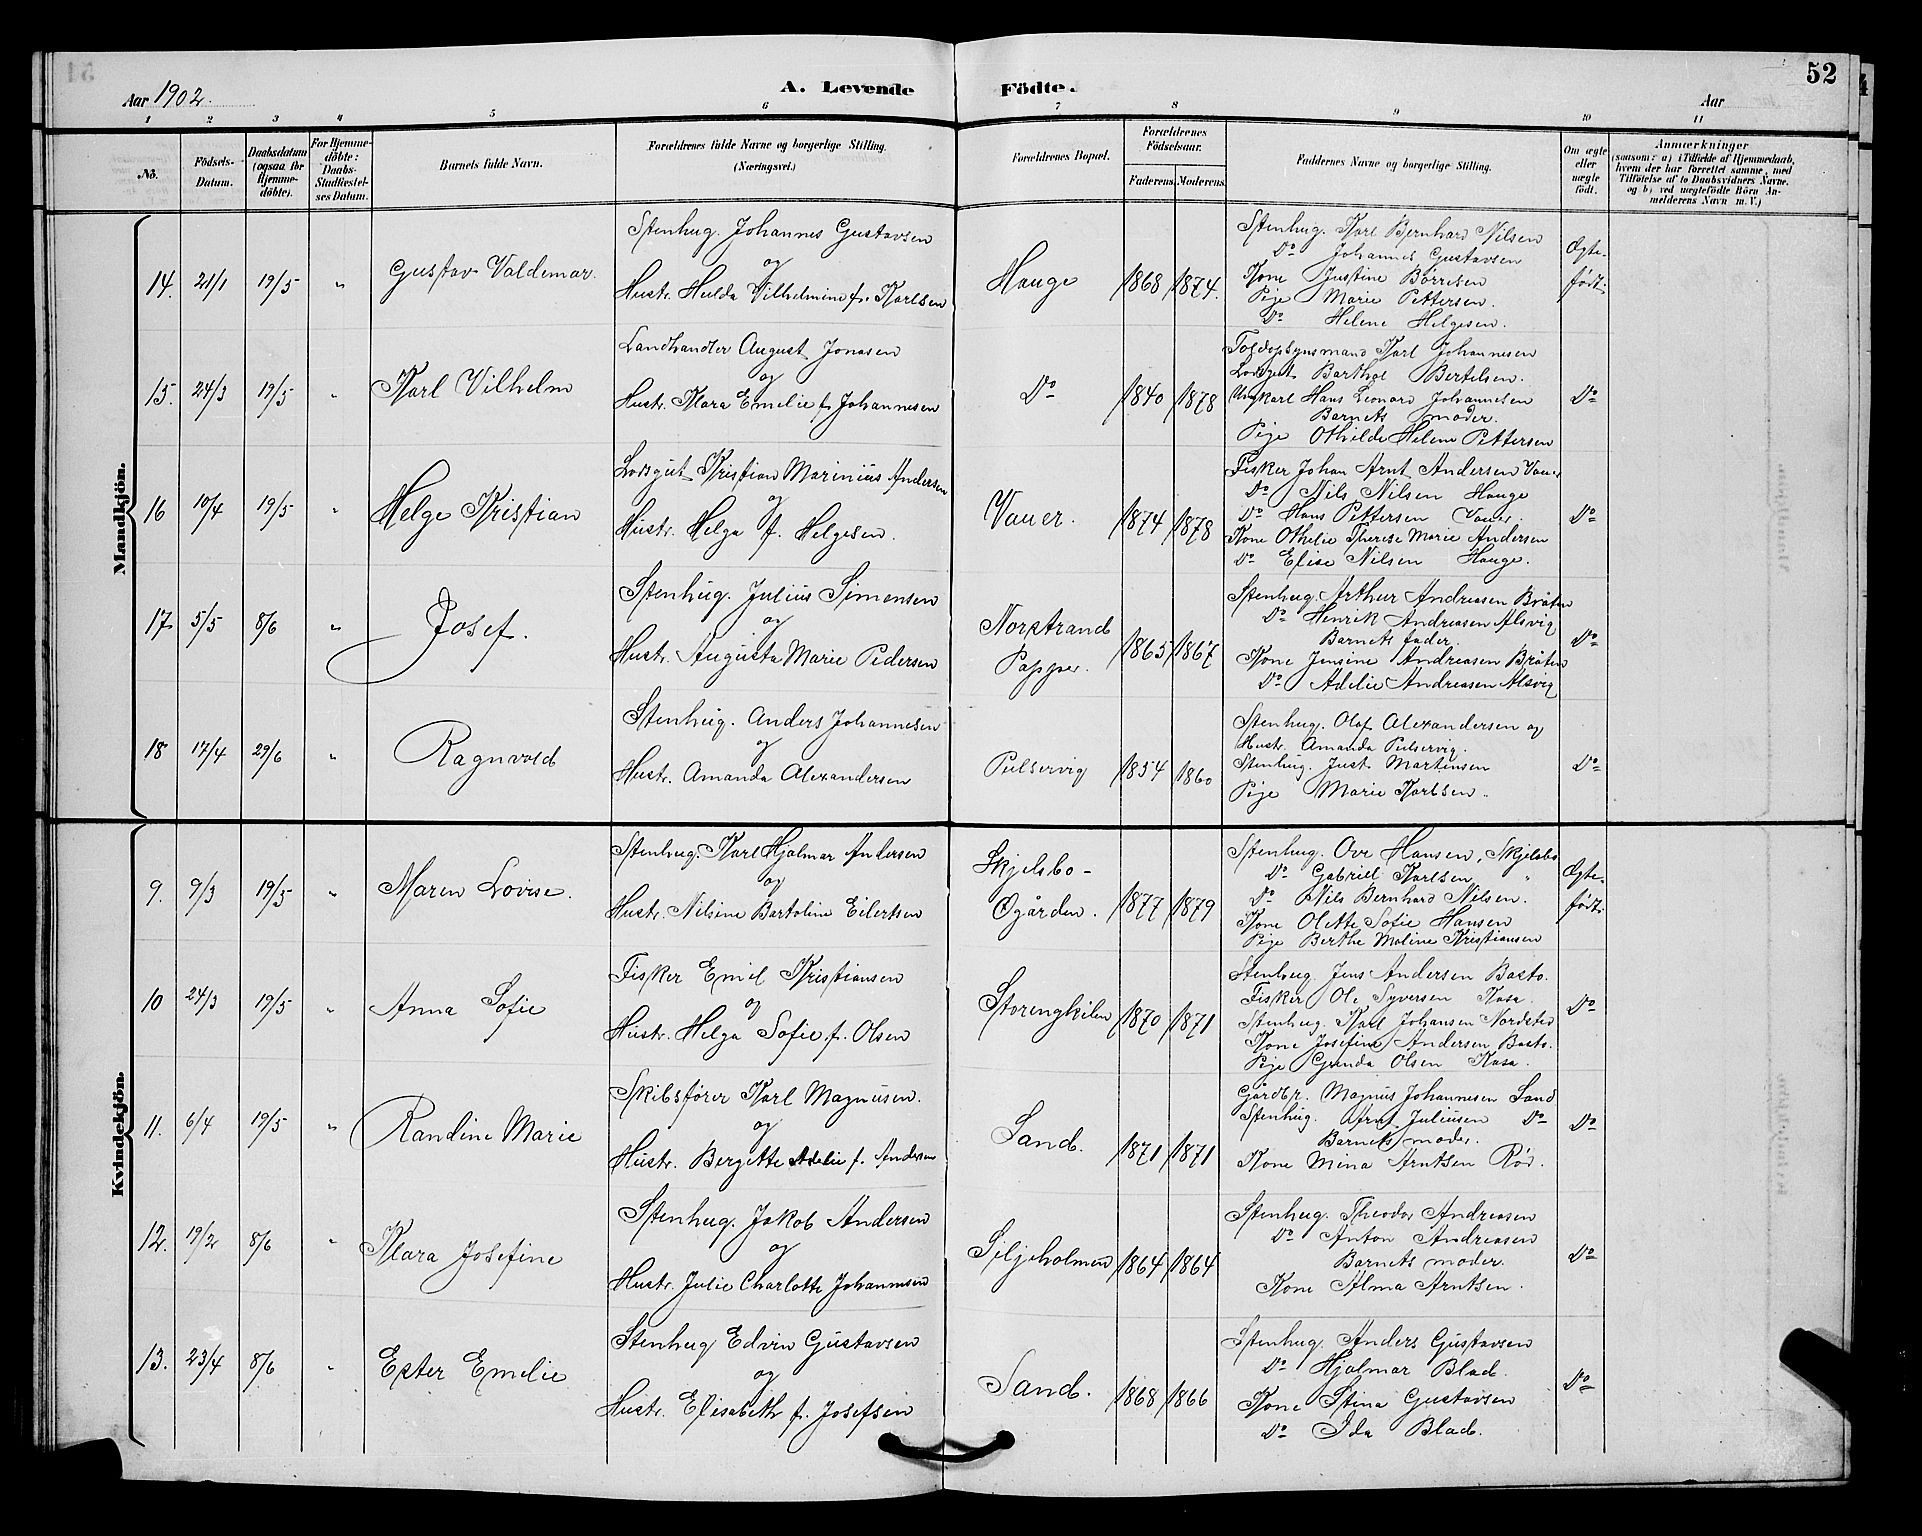 51
52
Aar 1902.
A. Levende Födte.
Aar
1 2 3 4 5 6 7 8 9 10 11
No.
Födsels-Datum.
Daabsdatum (ogsaa for Hjemmedöbte).
For Hjemmedöbte: Daabs-Stadfæstelses Datum.
Barnets fulde Navn.
Forældrenes fulde Navne og borgerlige Stilling.
(Næringsvei.)
Forældrenes Bopæl.
Forældrenes Födselsaar.
Faderens. Moderens.
Faddernes Navne og borgerlige Stilling.
Om ægte eller uægte födt.
Anmærkninger
(saasom: a) i Tilfælde af Hjemmedaab,
hvem der har forrettet samme, med
Tilföielse af to Daabsvidners Navne,
og b) ved uægtefödte Börn An-
melderens Navn m. V.)
Mandkjön.
14. 21/1 19/5 " Gustav Valdemar.
Stenhug. Johannes Gustavsen
og
Hustr. Hulda Vilhelmine f. Karlsen
Hauge 1868 1874.
Stenhug. Karl Bernhard Nilsen
Do Johannes Gustavsen
Kone Justine Børresen
Pige Marie Pettersen.
Do Helene Helgesen.
Ægte-
født.
15. 24/3 19/5 " Karl Vilhelm
Landhandler August Jonasen
og
Hustr. Klara Emelie f. Johannesen
Do 1840 1878
Toldopsynsmand Karl Johannesen
Lodsgut Barthol Bertelsen.
Ungkarl Hans Leonard Johannesen
Barnets moder.
Pige Othilde Helene Pettersen
Do
16 10/4 19/5 " Helge Kristian
Lodsgut Kristian Marinius Andersen
og
Hustr. Helga f. Helgesen.
Vauer. 1874 1878
Fisker Johan Arnt Andersen Vauer
Do Nils Nilsen Hauge
Do Hans Pettersen Vauer.
Kone Othelie Therese Marie Andersen
Do Elise Nilsen Hauge.
Do
17 5/5 8/6 " Josef.
Stenhug. Julius Simensen
og
Hustr. Augusta Marie Pedersen
Norstrand
Papper. 1865 1867
Stenhug. Arthur Andreasen Bråten
Do Henrik Andreasen Alsvig
Barnets fader.
Kone Jensine Andreasen Bråten
Do Adelie Andreasen Alsvig
Do
18 17/4 29/6 " Ragnvald
Stenhug. Anders Johannesen
og
Hustr. Amanda Alexandersen
Pulservig 1854 1860
Stenhug. Olaf Alexandersen og
Hustr. Amanda Pulservig.
Stenhug. Just Martinsen
Pige Marie Karlsen.
Do
Kvindekjön.
9. 9/3 19/5 " Maren Lovise.
Stenhug. Karl Hjalmar Andersen
og
Hustr. Nilsine Bartoline Eilertsen
Skjelsbo-
Øgården. 1877 1879
Stenhug. Ove Hansen, Skjelsbo
Do Gabriel Karlsen "
Do Nils Bernhard Nilsen.
Kone Olette Sofie Hansen
Pige Berthe Maline Kristiansen
Ægte-
født.
10 24/3 19/5 " Anna Sofie
Fisker Emil Kristiansen
og
Hustr. Helga Sofie f. Olsen
Storengkilen 1870 1871
Stenhug. Jens Andersen Basto.
Fisker Ole Syversen Kasa.
Stenhug. Karl Johansen Nordstad
Kone Josefine Andersen Basto.
Pige Gunda Olsen Kasa.
Do
11. 6/4 19/5 " Randine Marie
Skibsfører Karl Magnusen.
og
Hustr. Bergitte Adelie f. Andersen
Sand. 1871 1871
Gårdbr. Magnus Johannesen Sand
Stenhug. Arnt Juliusen Do
Barnets moder.
Kone Mina Arntsen Rød.
Do
12. 19/2 8/6 " Klara Josefine
Stenhug. Jakob Andersen
og
Hustr. Julie Charlotte Johannesen
Siljeholmen 1864 1864
Stenhug. Theodor Andreasen
Do Anton Andreasen
Barnets moder.
Kone Alma Arntsen.
Do
13. 23/4 8/6 " Ester Emelie
Stenhug Edvin Gustavsen
og
Hustr. Elisabeth f. Josefsen
Sand. 1868 1866
Stenhug. Anders Gustavsen
Do Hjalmar Blad.
Kone Stina Gustavsen
Do Ida Blad.
Do